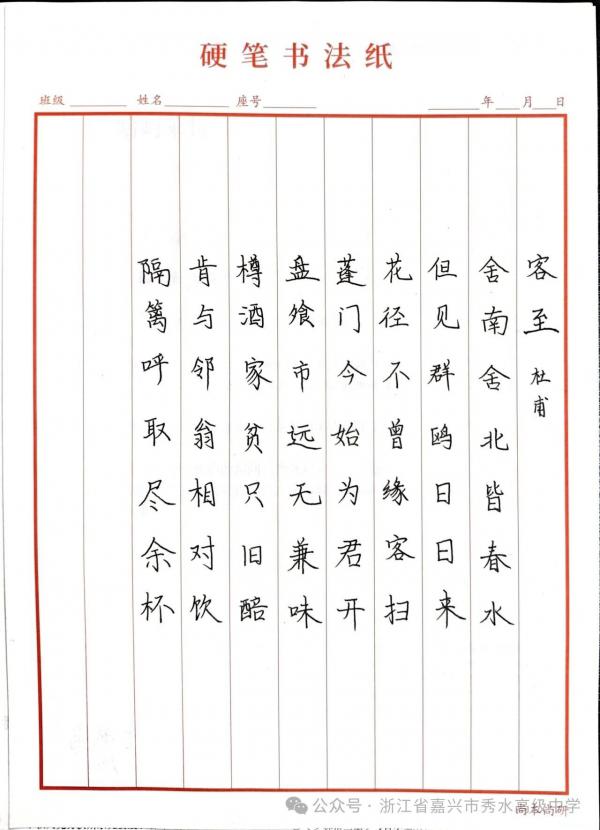 硬笔书法纸
班级 姓名 座号 年 月 日
客至 杜甫
舍南舍北皆春水
但见群鸥日日来
花径不曾缘客扫
蓬门今始为君开
盘飧市远无兼味
樽酒家贫只旧醅
肯与邻翁相对饮
隔篱呼取尽余杯
公众号·浙江省嘉兴市秀水高级中学